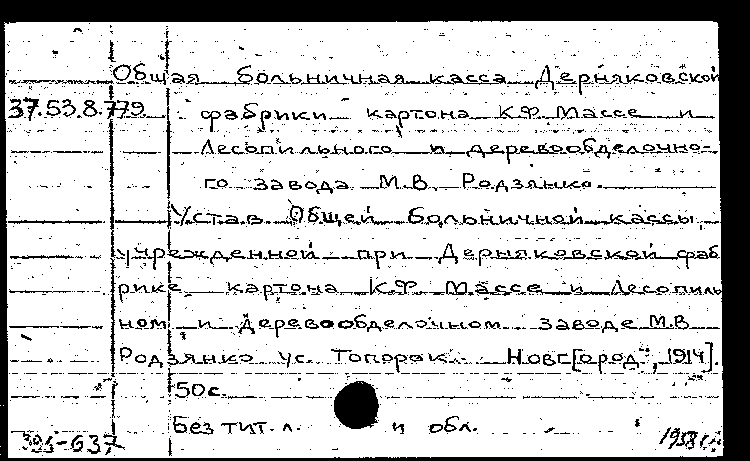 Общая больничная касса Дерняковской
37.53.8.779 фабрики картона К.Ф. Массе и
Лесопильного и деревообделочно-
го завода М.В. Родзянко.
Устав Общей больничной кассы,
учрежденной при Дерняковской фаб
рике картона К.Ф. Массе и Лесопиль
ном и деревообделочном заводе М.В.
Родзянко ус. Топорок. Новг[ород, 1914].
50 с.
Без тит. л. и обл.
395-637